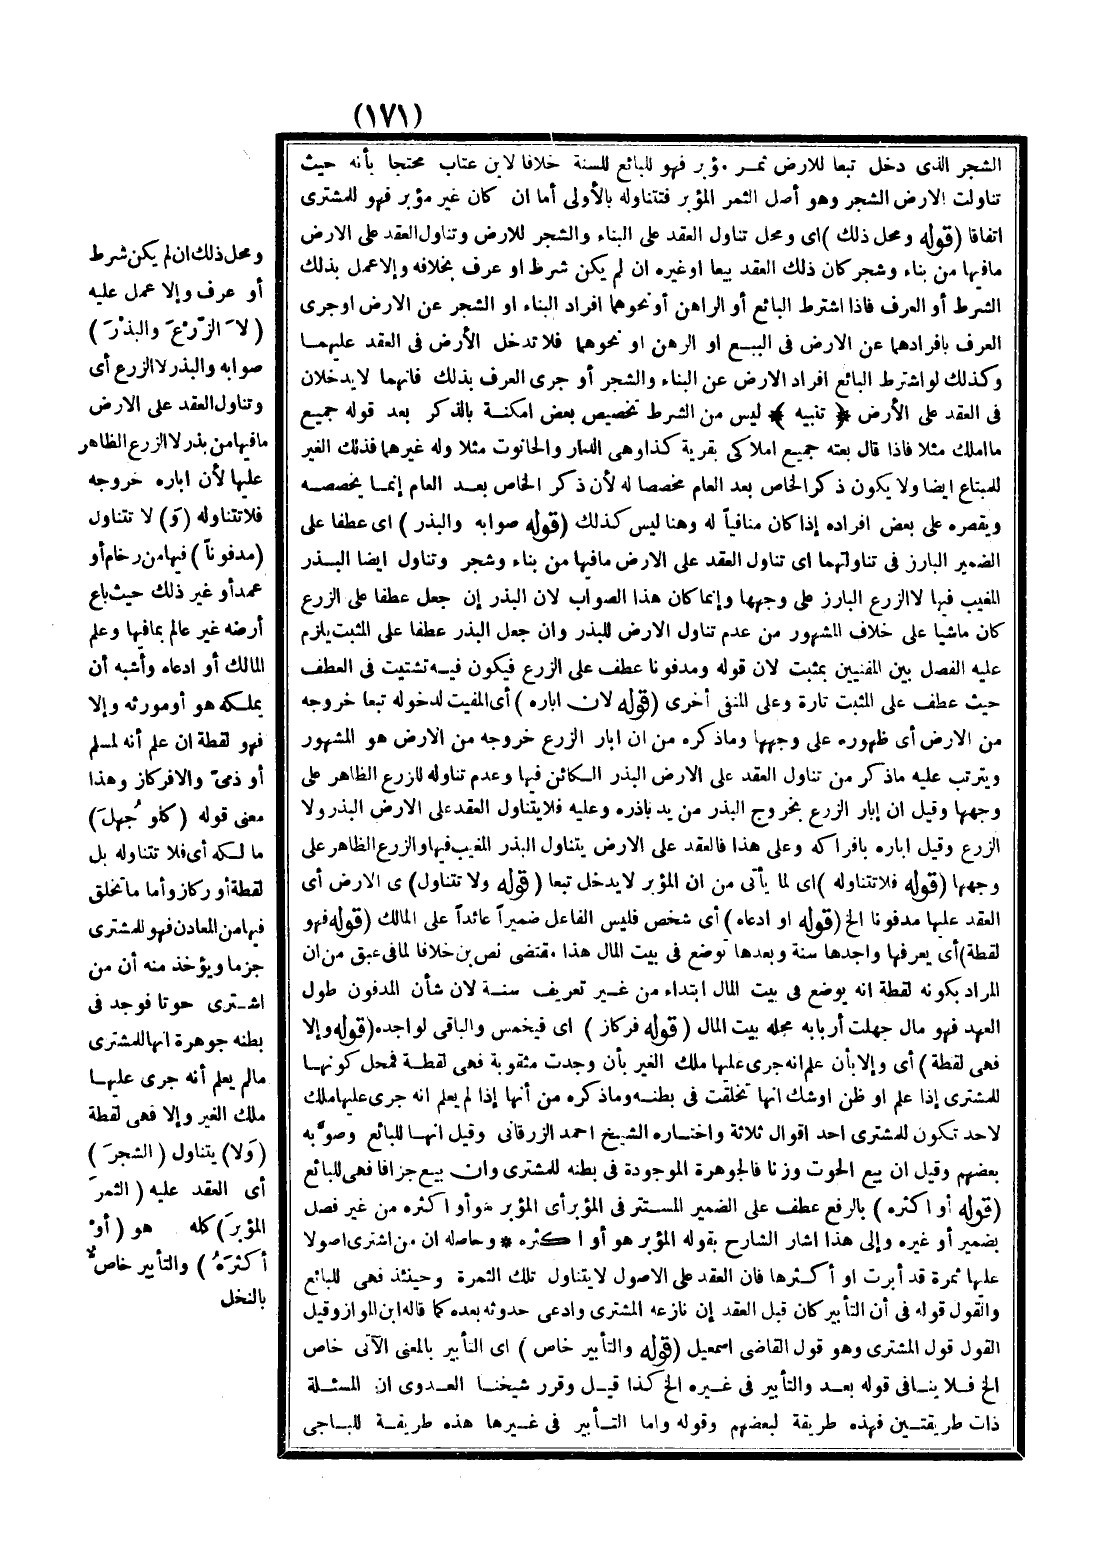 (١٧١)
الشجر الذى دخل تبعا للارض ثمر مؤبر فهو للبائع للسنة خلافا لابن عتاب محتجا بأنه حيث
تناولت الارض الشجر وهو أصل الثمر المؤبر فتتناوله بالأولى أما ان كان غير مؤبر فهو للمشترى
اتفاقا (قوله ومحل ذلك) اى ومحل تناول العقد على البناء والشجر للارض وتناول العقد على الارض
مافيها من بناء وشجر كان ذلك العقد بيعا اوغيره ان لم يكن شرط او عرف بخلافه والاعمل بذلك
الشرط أو العرف فاذا اشترط البائع أو الراهن أو نحوهما افراد البناء او الشجر عن الارض اوجرى
العرف بافرادهما عن الارض فى البيع او الرهن او نحوهما فلا تدخل الأرض فى العقد عليهما
وكذلك لو اشترط البائع افراد الارض عن البناء والشجر أو جرى العرف بذلك فانهما لايدخلان
فى العقد على الأرض ﴿ تنبيه ﴾ ليس من الشرط تخصيص بعض امكنة بالذكر بعد قوله جميع
مااملك مثلا فاذا قال بعته جميع املاكى بقرية كذا وهى الدار والحانوت مثلا وله غيرهما فذلك الغير
للمبتاع ايضا ولا يكون ذكر الخاص بعد العام مخصصا له لأن ذكر الخاص بعد العام إنما يخصصه
ويقصره على بعض افراده إذا كان منافياً له وهنا ليس كذلك (قوله صوابه والبذر) اى عطفا على
الضمير البارز فى تناولتهما اى تناول العقد على الارض مافيها من بناء وشجر وتناول ايضا البذر
المغيب فيها لاالزرع البارز على وجهها وإنما كان هذا الصواب لان البذر إن جعل عطفا على الزرع
كان ماشيا على خلاف المشهور من عدم تناول الارض للبذر وان جعل البذر عطفا على المثبت يلزم
عليه الفصل بين المنفيين بمثبت لان قوله ومدفونا عطف على الزرع فيكون فيه تشتيت فى العطف
حيث عطف على المثبت تارة وعلى المنفى أخرى (قوله لان اباره) أى المفيت لدخوله تبعا خروجه
من الارض أى ظهوره على وجهها وماذكره من ان ابار الزرع خروجه من الارض هو المشهور
ويترتب عليه ماذكر من تناول العقد على الارض البذر الكائن فيها وعدم تناوله للزرع الظاهر على
وجهها وقيل ان إبار الزرع بخروج البذر من يد باذره وعليه فلا يتناول العقد على الارض البذر ولا
الزرع وقيل اباره بافراكه وعلى هذا فالعقد على الارض يتناول البذر المغيب فيها والزرع الظاهر على
وجهها (قوله فلا تتناوله) اى لما يأتى من ان المؤبر لايدخل تبعا (قوله ولا تتناول) ى الارض أى
العقد عليها مدفونا الخ (قوله او ادعاه) أى شخص فليس الفاعل ضميراً عائداً على المالك (قوله فهو
لقطة) أى يعرفها واجدها سنة وبعدها توضع فى بيت المال هذا مقتضى نص بن خلافا لما فى عبق من ان
المراد بكونه لقطة انه يوضع فى بيت المال ابتداء من غير تعريف سنة لان شأن المدفون طول
العهد فهو مال جهلت أربابه محله بيت المال (قوله فركاز) اى فيخمس والباقى لواجده (قوله وإلا
فهى لقطة) أى وإلا بأن علم انه جرى عليها ملك الغير بأن وجدت مثقوبة فهى لقطة فمحل كونها
للمشترى إذا علم او ظن اوشك انها تخلقت فى بطنه وماذكره من أنها إذا لم يعلم انه جرى عليها ملك
لاحد تكون للمشترى احد اقوال ثلاثة واختاره الشيخ احمد الزرقانى وقيل انها للبائع وصوّبه
بعضهم وقيل ان بيع الحوت وزنا فالجوهرة الموجودة فى بطنه للمشترى وان بيع جزافا فهى للبائع
(قوله أو اكثره) بالرفع عطف على الضمير المستتر فى المؤبر أى المؤبر هو أو اكثره من غير فصل
بضمير أو غيره وإلى هذا اشار الشارح بقوله المؤبر هو أو اكثره * وحاصله ان من اشترى اصولا
عليها ثمرة قد أبرت او أكثرها فان العقد على الاصول لايتناول تلك الثمرة وحينئذ فهى للبائع
والقول قوله فى أن التأبير كان قبل العقد إن نازعه المشترى وادعى حدوثه بعده كما قاله ابن المواز وقيل
القول قول المشترى وهو قول القاضى اسمعيل (قوله والتأبير خاص) اى التأبير بالمعنى الآتى خاص
الخ فلا ينافى قوله بعد والتأبير فى غيره الخ كذا قيل وقرر شيخنا العدوى ان المسئلة
ذات طريقتين فهذه طريقة لبعضهم وقوله واما التأبير فى غيرها هذه طريقة للباجى
ومحل ذلك ان لم يكن شرط
أو عرف وإلا عمل عليه
(لاَ الزَّرْعَ والبذْرَ)
صوابه والبذر لاالزرع أى
وتناول العقد على الارض
مافيها من بذر لاالزرع الظاهر
عليها لأن اباره خروجه
فلا تتناوله (وَ) لا تتناول
(مدفوناً) فيها من رخام أو
عمد أو غير ذلك حيث باع
أرضه غير عالم بمافيها وعلم
المالك أو ادعاه وأشبه أن
يملكه هو أو مورثه وإلا
فهو لقطة ان علم أنه لمسلم
أو ذمىّ والافركاز وهذا
معنى قوله (كلو جُهلَ)
مالكه أى فلا تتناوله بل
لقطة أو ركاز وأما ماتخلق
فيها من المعادن فهو للمشترى
جزما ويؤخذ منه أن من
اشترى حوتا فوجد فى
بطنه جوهرة انها للمشترى
مالم يعلم أنه جرى عليها
ملك الغير وإلا فهى لقطة
(وَلا) يتناول (الشجرَ)
أى العقد عليه (الثمرَ
المؤبرَ) كله هو (أوْ
أكثرَهُ) والتأبير خاص
بالنخل